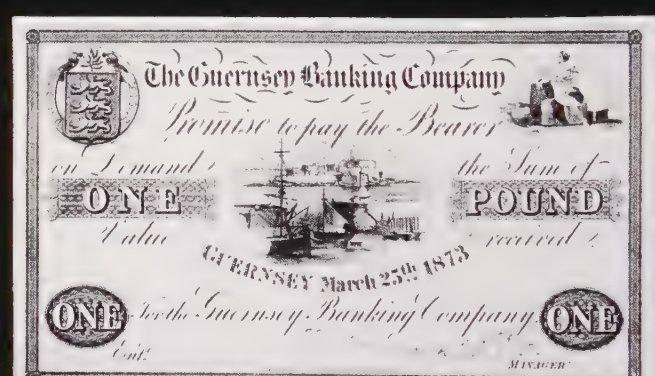 The Guernsey Banking Company
Promise to pay the Bearer
on Demand the Sum of
ONE POUND
Value received
GUERNSEY March 25th 1873
ONE For the Guernsey Banking Company ONE
Entd.
MANAGER